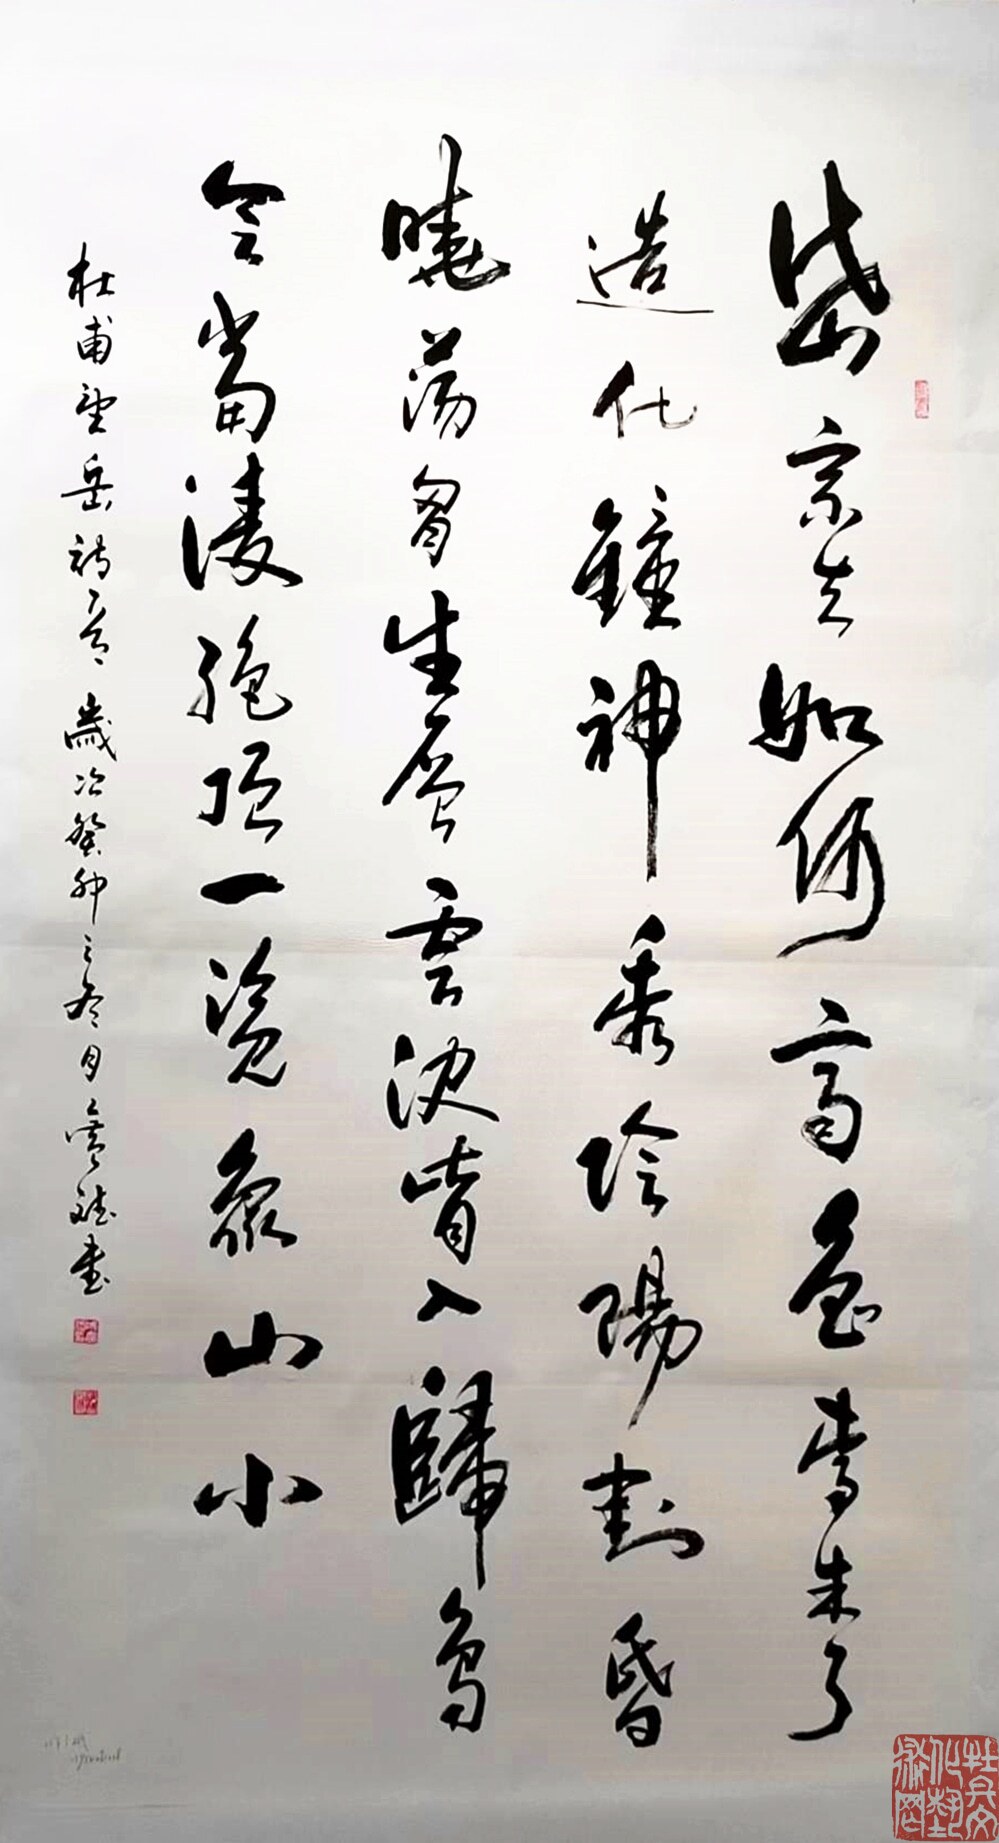 岱宗夫如何齊魯青未了
造化鐘神秀陰陽割昏
曉蕩胷生層雲決眥入歸鳥
會當凌絕頂一覽眾山小
杜甫望岳詩一首歲次癸卯之冬月斌書